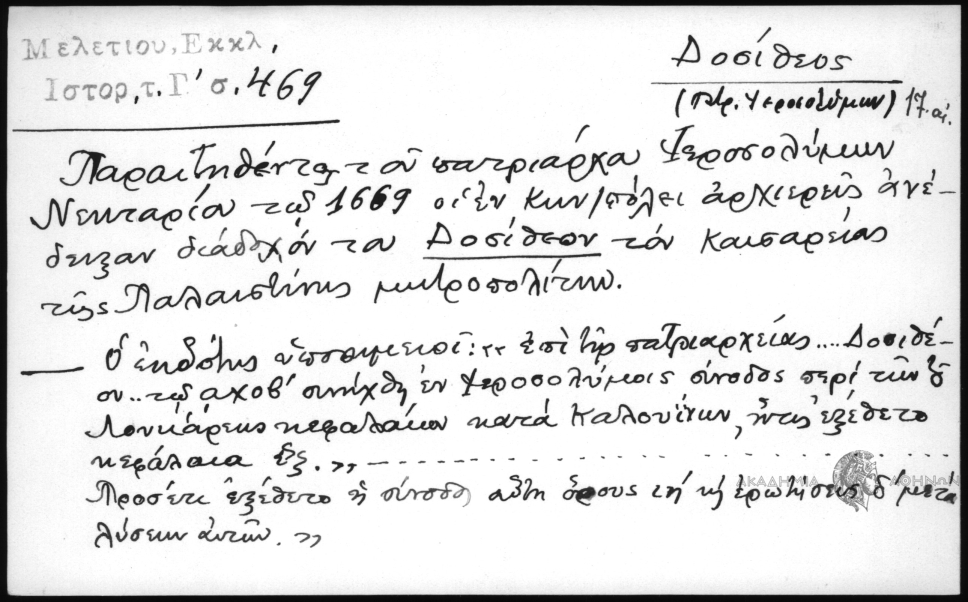 Μελετιου, Εκκλ,
Ιστορ, τ. Γ' σ. 469
Δοσίθεος
(Πατρ. Ἱεροσολύμων) 17. αἰ.
Παραιτηθέντος τοῦ πατριάρχα Ἱεροσολύμων
Νεκταρίου τῷ 1669 οἱ ἐν Κων/πόλει ἀρχιερεῖς ἀνέ-
δειξαν διάδοχόν του Δοσίθεον τόν Καισαρείας
τῆς Παλαιστίνης μητροπολίτην.
— Ὁ ἐκδότης ὑποσημειοῖ: «ἐπὶ τῆς πατριαρχείας .... Δοσιθέ-
ου .. τῷ αχοβ' συνήχθη ἐν Ἱεροσολύμοις σύνοδος περί τῶν
Λουκάρεως κεφαλαίων κατά Καλουίνων, ἥτις ἐξέθετο
κεφάλαια ἕξ. »
Προσέτι ἐξέθετο ἡ σύνοδος αὕτη ὅρους ιή κ ἐρωτήσεις δ' μετά
λύσεων αὐτῶν. »
ΑΚΑΔΗΜΙΑ ΑΘΗΝΩΝ